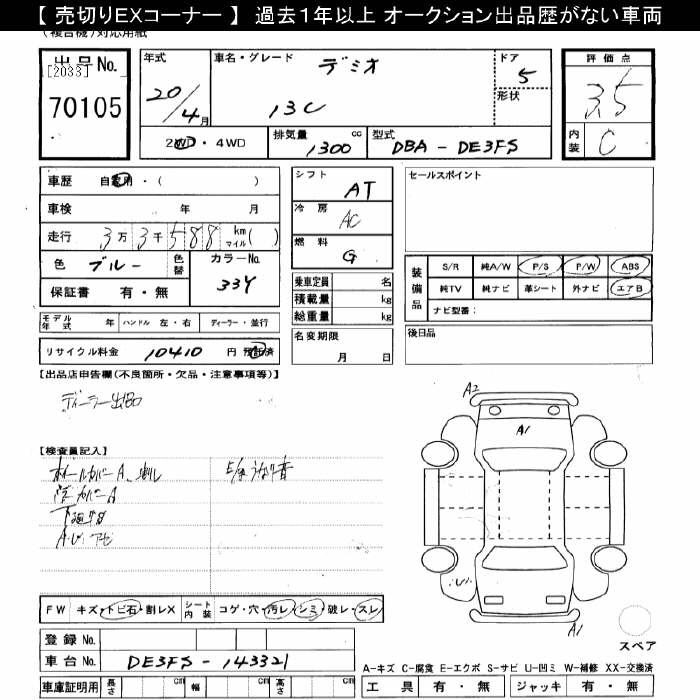 【 売切りEXコーナー 】 過去1年以上 オークション出品歴がない車両
(複合機)対応用紙
出品No.
[2033]
70105
年式
20/4月
車名・グレード
デミオ
13C
ドア
5
形状
評価点
3.5
内装
C
2WD・4WD
排気量 1300 cc
型式
DBA - DE3FS
車歴 自家用・( )
車検 年 月
走行 3万3千588 km マイル( )
色 ブルー 色替
カラーNo. 33Y
保証書 有・無
シフト AT
冷房 AC
燃料 G
乗車定員 名
積載量 kg
総重量 kg
セールスポイント
装備品
S/R 純A/W P/S P/W ABS
純TV 純ナビ 革シート 外ナビ エアB
ナビ型番：
モデル年式 年 ハンドル 左・右 ディーラー・並行
リサイクル料金 10410 円 預託済
名変期限
月 日
後日品
【出品店申告欄(不良箇所・欠品・注意事項等)】
ディーラー出品
【検査員記入】
ホイールカバーA、割レ
下廻サビ
A2
A1
U1
A1
スペア
FW キズ・トビ石・割レX
シート内装 コゲ・穴・汚レ・シミ・破レ・スレ
登録No.
車台No. DE3FS - 143321
車庫証明用 長さ cm 幅 cm 高さ cm
A-キズ C-腐食 E-エクボ S-サビ U-凹ミ W-補修 XX-交換済
工具 有・無 ジャッキ 有・無